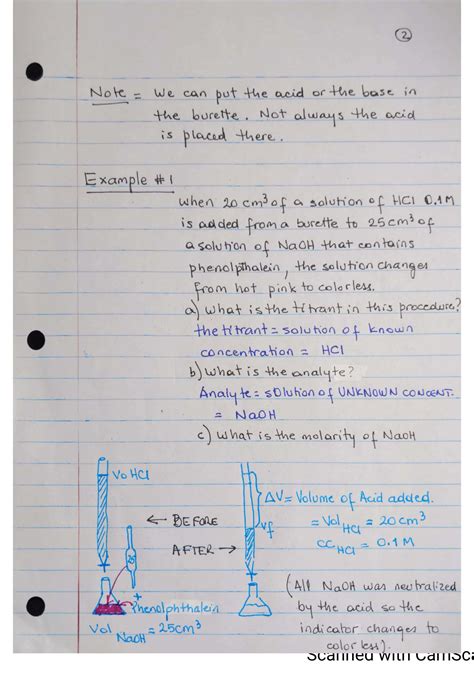 2
Note = We can put the acid or the base in
the burette. Not always the acid
is placed there.
Example #1
When 20 cm³ of a solution of HCl 0.1M
is added from a burette to 25 cm³ of
a solution of NaOH that contains
phenolpthalein, the solution changes
from hot pink to colorless.
a) What is the titrant in this procedure?
the titrant = solution of known
concentration = HCl
b) What is the analyte?
Analyte = solution of UNKNOWN CONCENT.
= NaOH
c) What is the molarity of NaOH
Vo HCl
ΔV = Volume of Acid added.
← BEFORE
Vf
= Vol HCl = 20 cm³
AFTER →
CC HCl = 0.1M
25
+
Phenolphthalein
Vol NaOH = 25cm³
(All NaOH was neutralized
by the acid so the
indicator changes to
colorless).
Scanned with CamSca